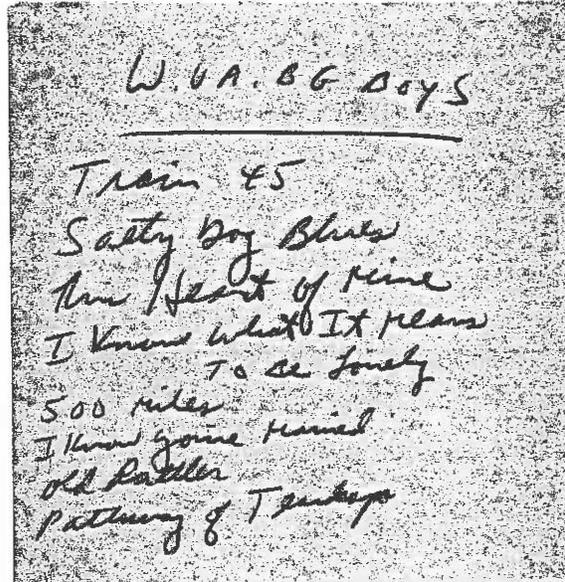 W.VA. BG BOYS
Train 45
Salty Dog Blues
This Heart of Mine
I Know What It Means
To Be Lonely
500 Miles
I Know You're Married
Old Rattler
Pathway of Teardrops